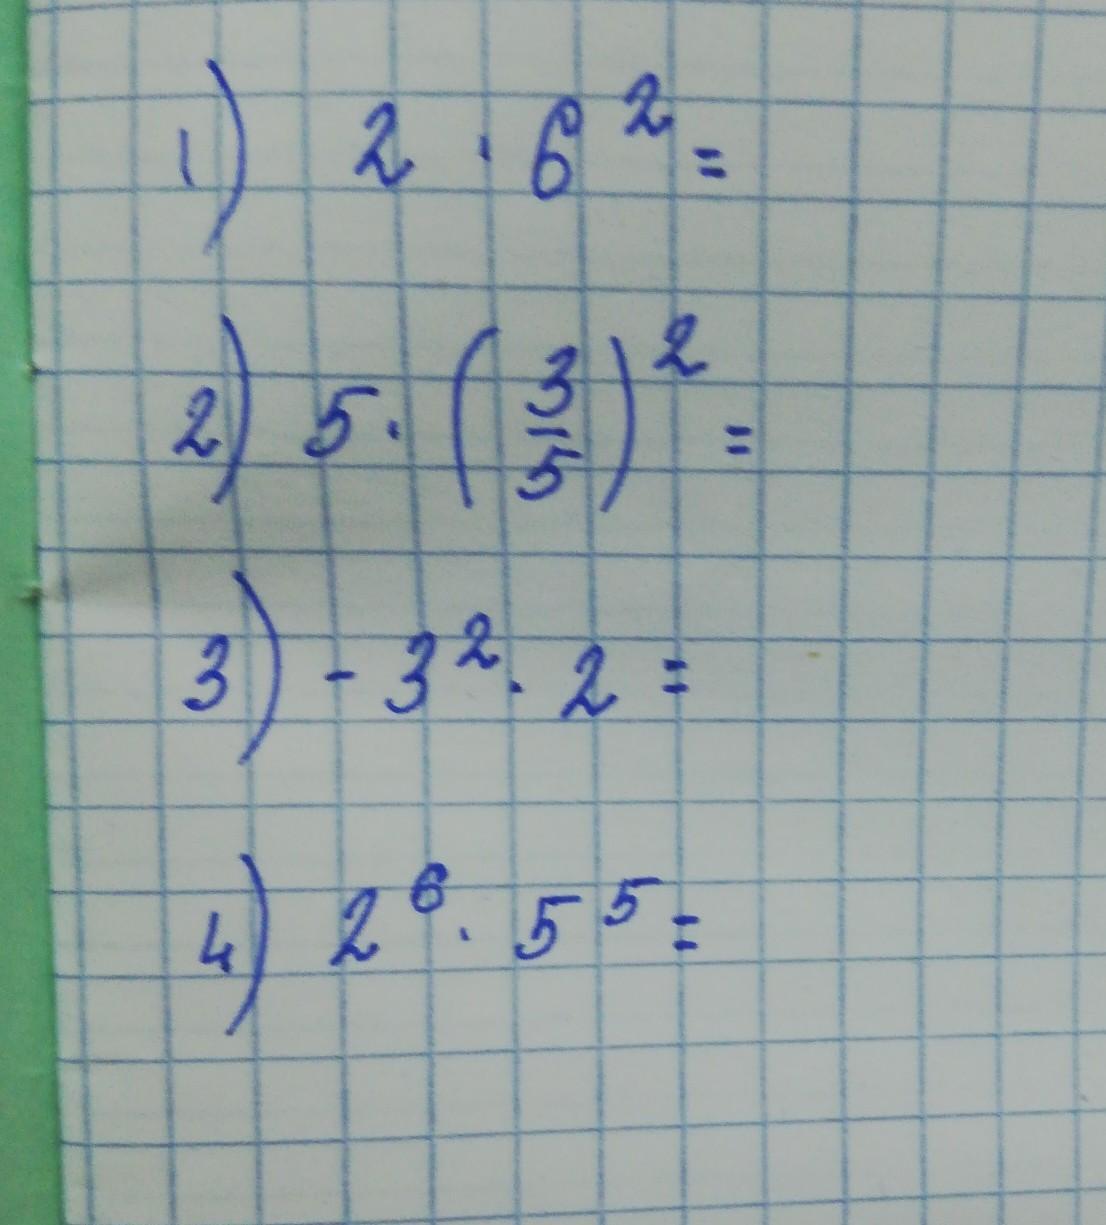 1) 2 · 6² =
2) 5 · (3/5)² =
3) - 3² · 2 =
4) 2⁶ · 5⁵ =